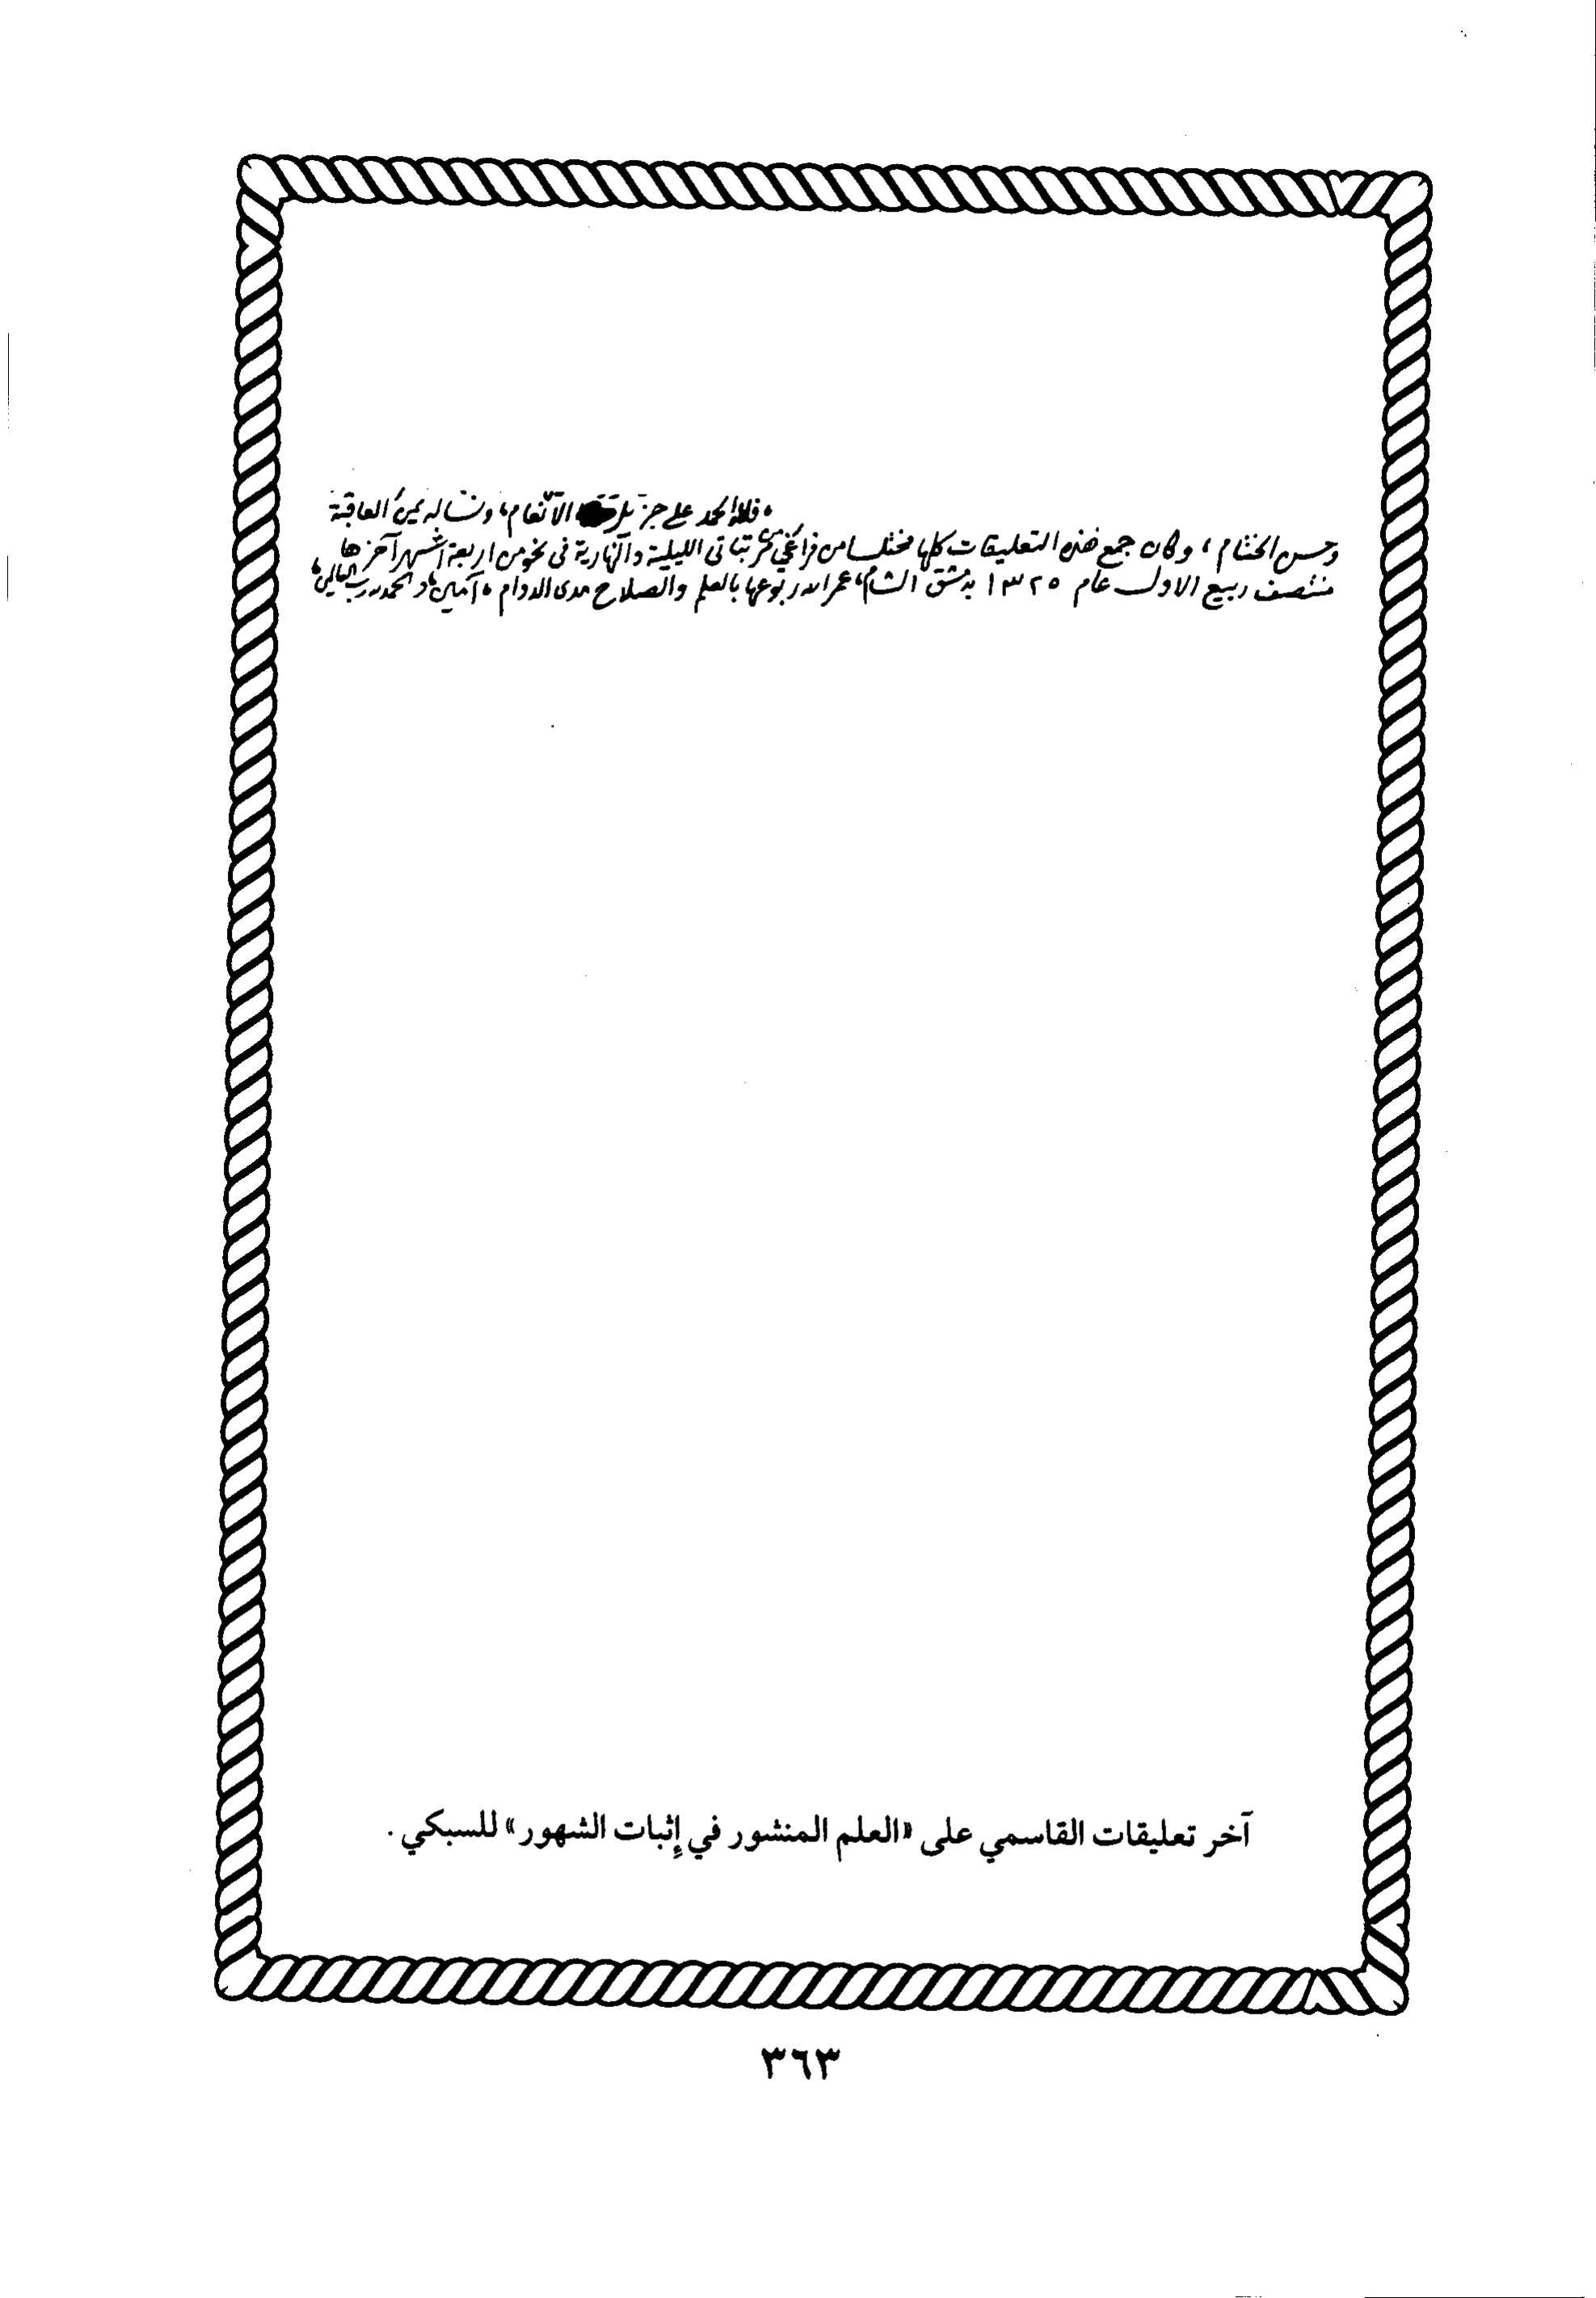 ، فلله الحمد على جزيل الانعام، ونسأله يمن العاقبة
وحسن الختام، وكان جمع هذه التعليقات كلها مختلسا من فراغي من مرتباتي الليلية والنهارية في نحو من اربعة اشهر آخرها
منتصف ربيع الاول عام ١٣٢٥ بدمشق الشام، عمر الله ربوعها بالعلم والصلاح مدى الدوام، آمين، والحمد لله رب العالمين،
آخر تعليقات القاسمي على «العلم المنشور في إثبات الشهور» للسبكي.
٣٦٣